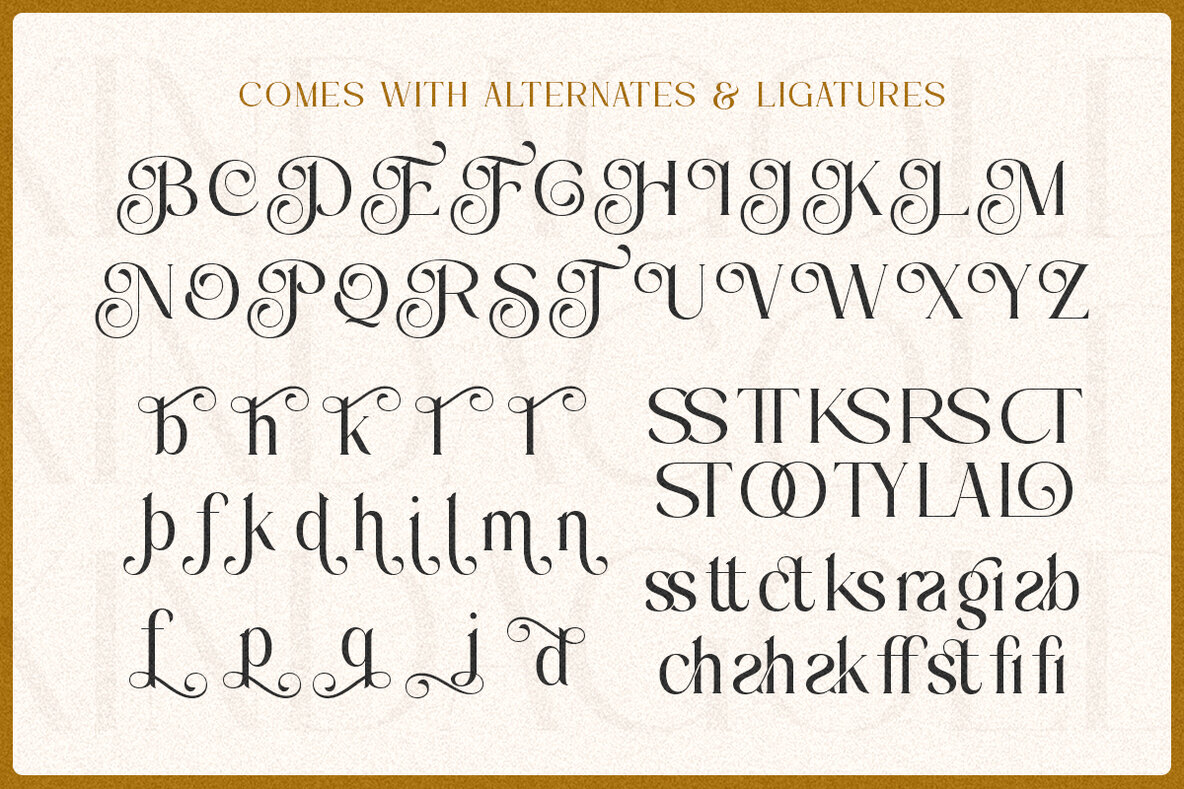 COMES WITH ALTERNATES & LIGATURES
B C D E F G H I J K L M
N O P Q R S T U V W X Y Z
b h k l l
SS TT KS RS CT
ST OO TY LA LO
b f k d h i l m n
ss tt ct ks ra gi ab
f p q j d
ch ah ak ff st fi fi